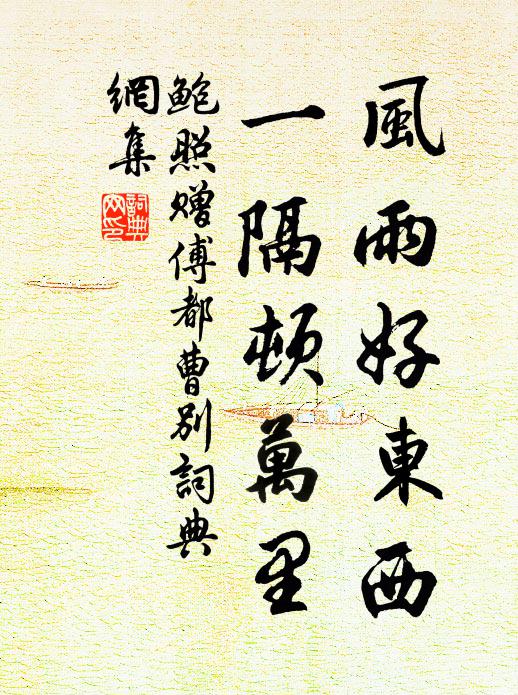 風雨好東西
一隔頓萬里
鮑照贈傅都曹別詞典
網集
詞典
网印